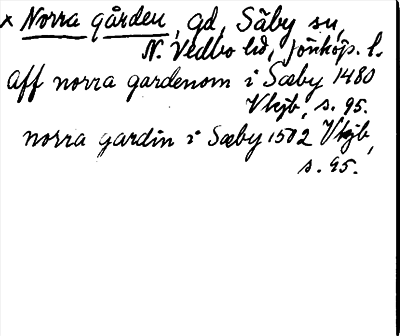 × Norra gården, gd, Säby sn,
N. Vedbo hd, Jönköp. l.
aff norra gardenom i Sæby 1480
Vkjb, s. 95.
norra gardin i Sæby 1502 Vkjb,
s. 95.